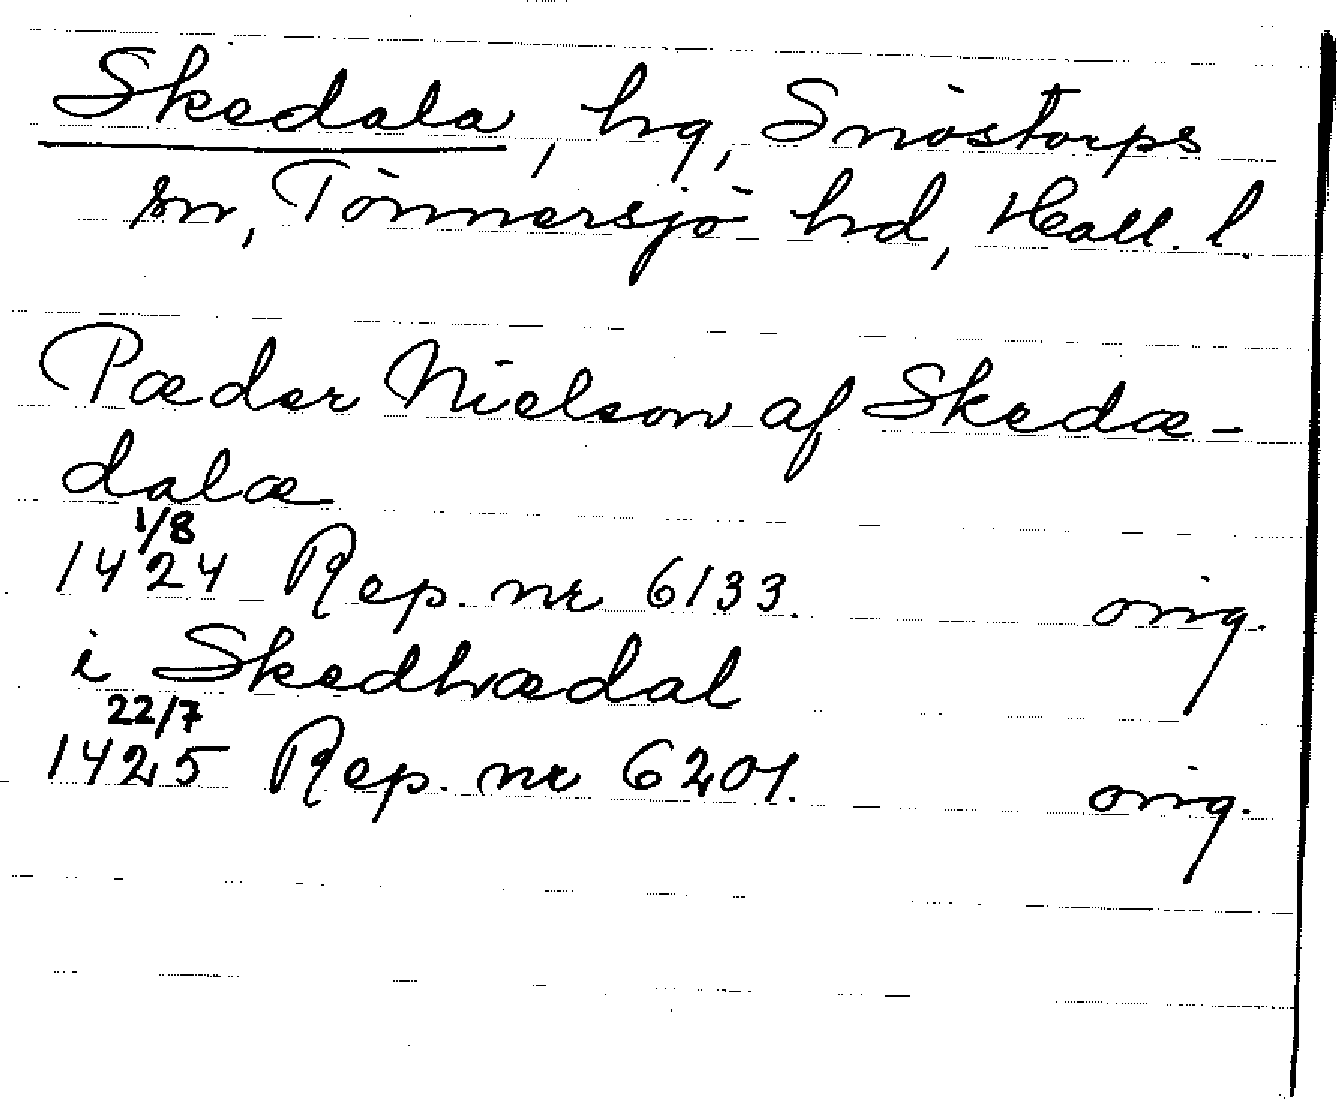 Skedala, hg, Snöstorps
sn, Tönnersjö hd, Hall. l.
Pæder Nielson af Skedæ-
dalæ
1/8
1424 Rep. nr 6133. orig.
i Skedhædal
22/7
1425 Rep. nr 6201. orig.